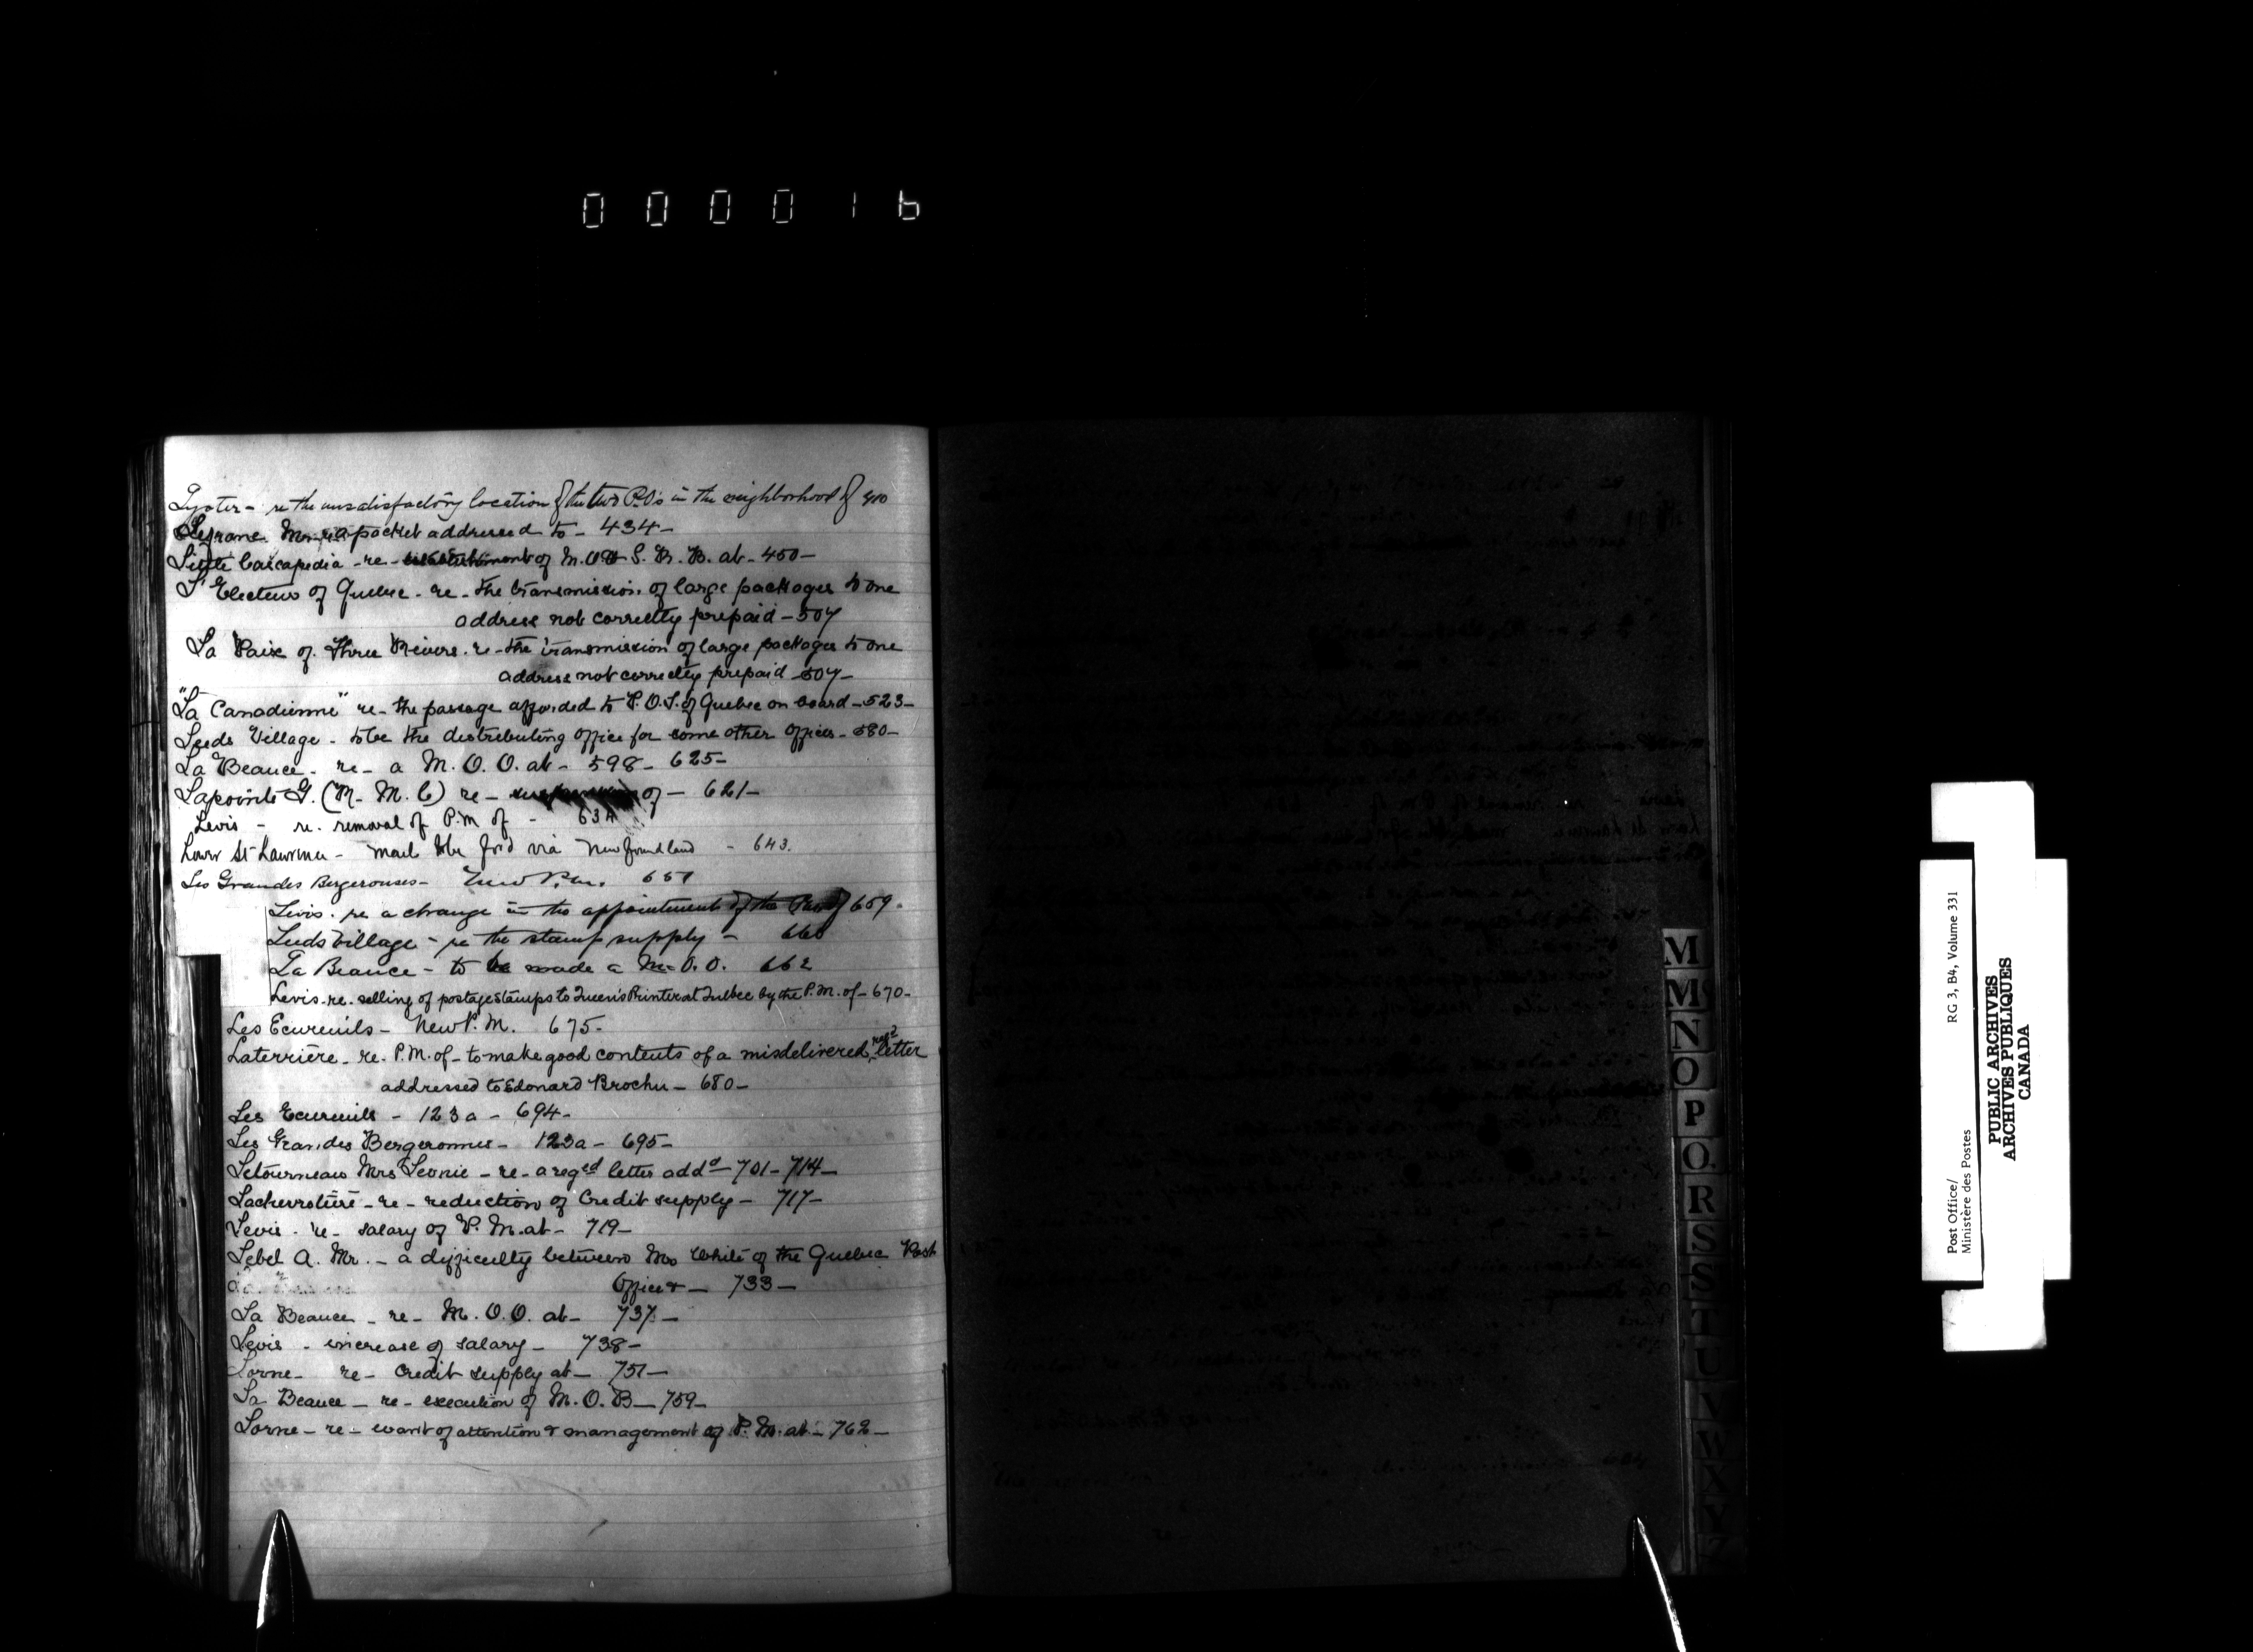 000016
Lyster - re the unsatisfactory location of the two P.O's in the neighborhood of 410
Lefranc Mr - re a packet addressed to - 434 -
Little Cascapedia - re - establishment of M.O. & S. Br. B. at - 450 -
L'Electeur of Quebec - re - the transmission of large packages to one
address not correctly prepaid - 507
La Paix of Three Rivers - re - the transmission of large packages to one
address not correctly prepaid - 507 -
"La Canadienne" re - the passage afforded to P.O.I. of Quebec on board - 523 -
Leeds Village - to be the distributing office for some other offices - 580 -
La Beauce - re - a M.O.O. at - 598 - 625 -
Lapointe G. (R. M. C) re - suspension of - 621 -
Levis - re. removal of P.M of - 634
Lower St Lawrence - mail to be for'd via Newfoundland - 643.
Les Grandes Bergeronnes - New P.M. 657
Levis - re a change in the appointment of the P.M. of 659 -
Leeds Village - re the stamp supply - 660
La Beauce - to be made a M.O.O. 662
Levis - re - selling of postage stamps to Queen's Printer at Quebec by the P.M. of - 670 -
Les Ecureuils - New P.M. 675 -
Laterrière - re - P.M. of - to make good contents of a misdelivered regd letter
addressed to Edouard Brochu - 680 -
Les Ecureuils - 123a - 694 -
Les Grandes Bergeronnes - 123a - 695 -
Letourneau Mrs Leonie - re - a reged letter addd - 701 - 714 -
Lachevrotière - re - reduction of Credit supply - 717 -
Levis - re - salary of P.M. at - 719 -
Lebel A. Mr. - a difficulty between Mr White of the Quebec Post
Office & - 733 -
La Beauce - re - M.O.O. at - 737 -
Levis - increase of salary - 738 -
Lorne - re - Credit supply at - 757 -
La Beauce - re - execution of M.O.B - 759 -
Lorne - re - want of attention & management of P.M. at - 762 -
M
M
N
O
P
Q
R
S
S
T
U
V
W
X
Y
Z
Post Office/
Ministère des Postes
RG 3, B4, Volume 331
PUBLIC ARCHIVES
ARCHIVES PUBLIQUES
CANADA